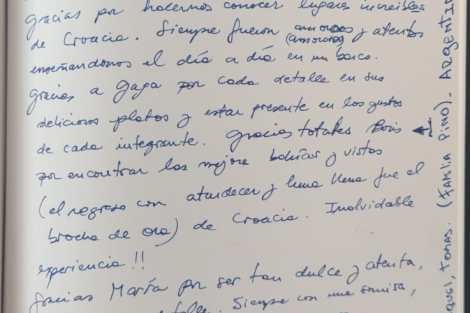 gracias por hacernos conocer lugares increíbles
de Croacia. Siempre fueron amorosos (amorosos) y atentos
enseñandonos el día a día en un barco.
gracias a Gaga por cada detalle en sus
deliciosos platos y estar presente en los gustos
de cada integrante. gracias totales Boris
por encontrar las mejore bahías y vistas
(el regreso con atardecer y luna llena fue el
broche de oro) de Croacia. Inolvidable
experiencia!!
gracias María por ser tan dulce y atenta,
Siempre con una sonrisa,
Tomas. (Familia Pino). ARGENTIN